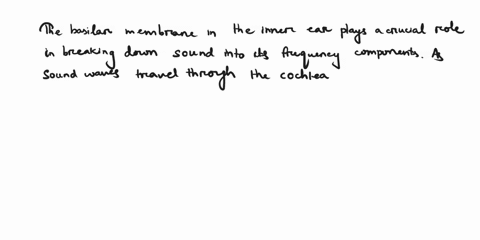 The basilar membrane in the inner ear plays a crucial role
in breaking down sound into its frequency components. As
sound waves travel through the cochlea